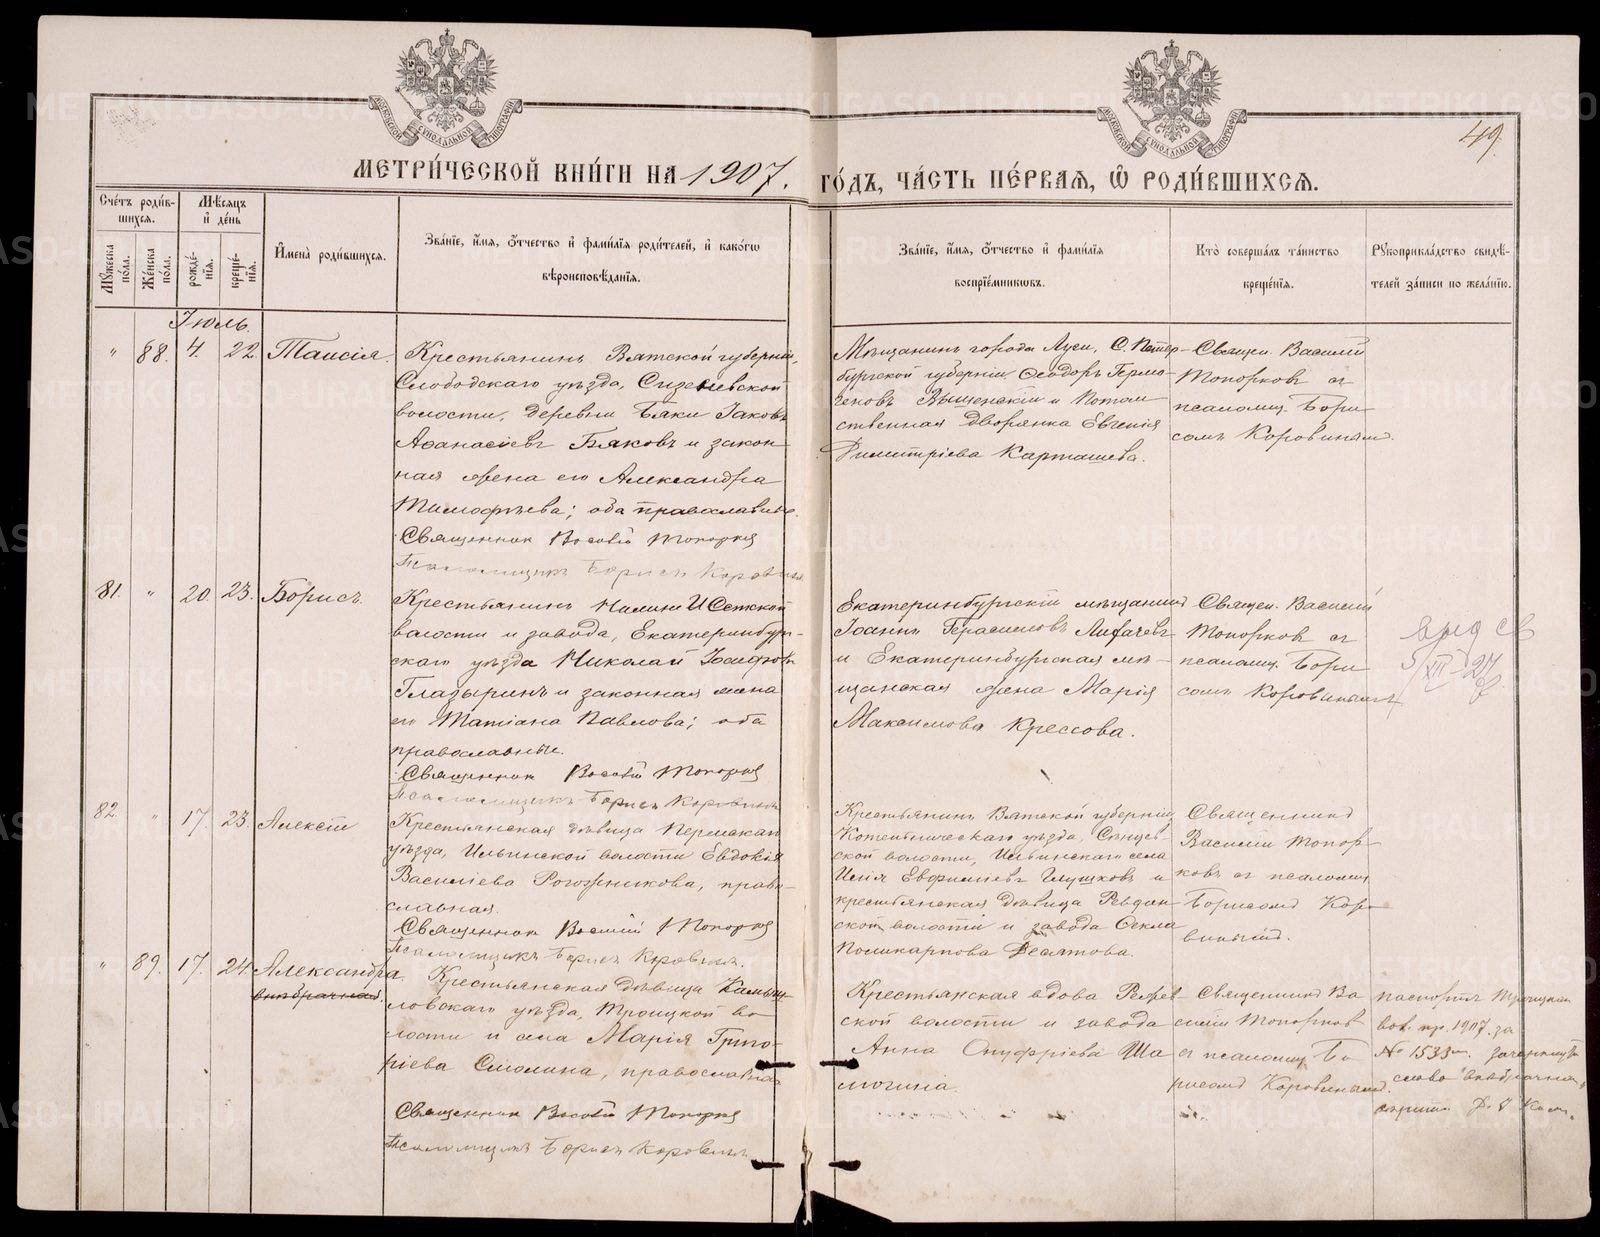 49.
МЕТРИ́ЧЕСКОЙ КНИ́ГИ НА 1907. ГО́ДЪ, ЧА́СТЬ ПЕ́РВАЯ, Ѡ РОДИ́ВШИХСЯ.
Сче́тъ роди́в-
шихся.
Мѣ́сяцъ
и де́нь
Мꙋ́жеска
по́ла.
Же́нска
по́ла.
рожде́-
нїя.
креще́-
нїя.
И҆мена̀ роди́вшихся.
Зва́нїе, и҆́мя, ѻ҆́тчество и҆ фами́лїя роди́телей, и҆ како́гѡ
вѣроисповѣ́данїя.
Зва́нїе, и҆́мя, ѻ҆́тчество и҆ фами́лїя
воспрїе́мникѡвъ.
Кто̀ соверша́лъ та́инство
креще́нїя.
Рꙋкоприкла́дство свидѣ́-
телей за́писи по жела́нїю.
Іюль.
" 88. 4. 22. Таисія.
Крестьянинъ Вятской губерніи,
Слободскаго уѣзда,
волости, деревни Бяки Іаковъ
Аѳанасіевъ Бяковъ и закон
ная жена его Александра
Тимофѣева; оба православные.
Священник Василій Топорков
Псаломщикъ Борисъ Коровинъ
Мѣщанинъ города Луги, С. Петер-
бургской губерніи Ѳеодоръ Гермо-
геновъ и Потом
ственная дворянка Евгенія
Димитріева Карташева.
Священ. Василій
Топорков съ
псаломщ. Бори
сомъ Коровинымъ.
81. " 20. 23. Борисъ.
Крестьянинъ Нижне Исетской
волости и завода, Екатеринбург-
скаго уѣзда Николай Іосифовъ
Гладыринъ и законная жена
его Татіана Павлова; оба
православные.
Священник Василій Топорков
Псаломщикъ Борисъ Коровинъ
Екатеринбургскій мѣщанинъ
Іоаннъ Герасимовъ Лихачевъ
и Екатеринбургская мѣ-
щанская жена Марія
Максимова Крессова.
Священ. Василій
Топорков съ
псаломщ. Бори
сомъ Коровинымъ
82. " 17. 23. Алексій
Крестьянская дѣвица Пермскаго
уѣзда, Ильинской волости Евдокія
Василіева Рогожникова, право-
славная.
Священник Василій Топорков
Псаломщикъ Борисъ Коровинъ.
Крестьянинъ Вятской губерніи,
Котельническаго уѣзда,
ской волости, Ильинскаго села
Илія Евфиміевъ Глушковъ и
крестьянская дѣвица Ревдин
ской волости и завода Ѳекла
Поликарпова Десятова.
Священникъ
Василій Топор-
ковъ съ псаломщ.
Борисомъ Коро-
винымъ.
" 89. 17. 24. Александра.
внѣбрачная.
Крестьянская дѣвица Камыш-
ловскаго уѣзда, Троицкой во
лости и села Марія Григо-
ріева Смолина, православная
Священник Василій Топорков
Псаломщикъ Борисъ Коровинъ
Крестьянская вдова Режев-
ской волости и завода
Анна Онуфріева Ша
могина.
Священникъ Ва
силій Топорков
съ псаломщ. Бо
рисомъ Коровинымъ.
паспортъ Троицкой
вол. пр. 1907. за
№ 1533. зачеркнуто
слово "внѣбрачная"